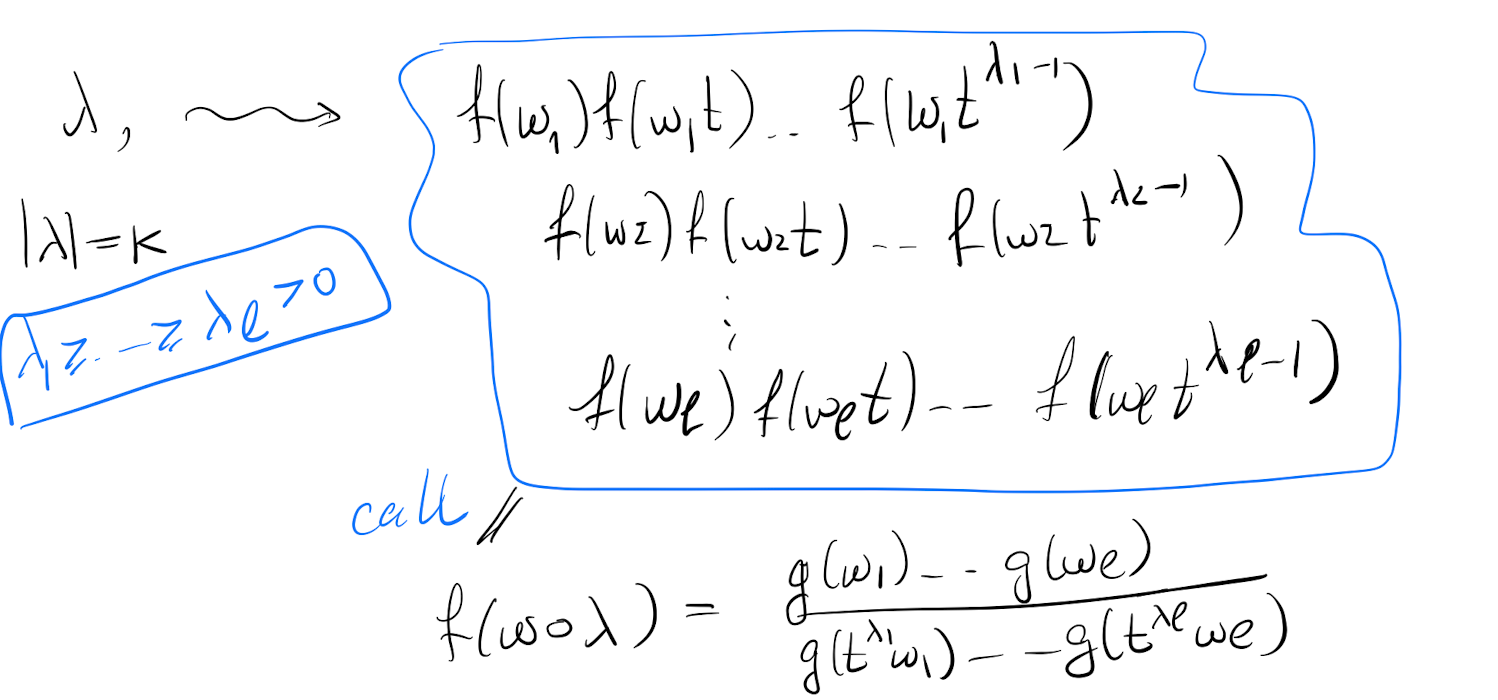 λ, ⇝ f(w₁)f(w₁t)... f(w₁t^{λ₁-1})
|λ|=k f(w₂)f(w₂t)... f(w₂t^{λ₂-1})
λ₁≥...≥λ_ℓ>0
⋮
f(w_ℓ)f(w_ℓt)... f(w_ℓt^{λ_ℓ-1})
call //
f(w∘λ) = \frac{g(w₁)...g(w_ℓ)}{g(t^{λ₁}w₁)...g(t^{λ_ℓ}w_ℓ)}